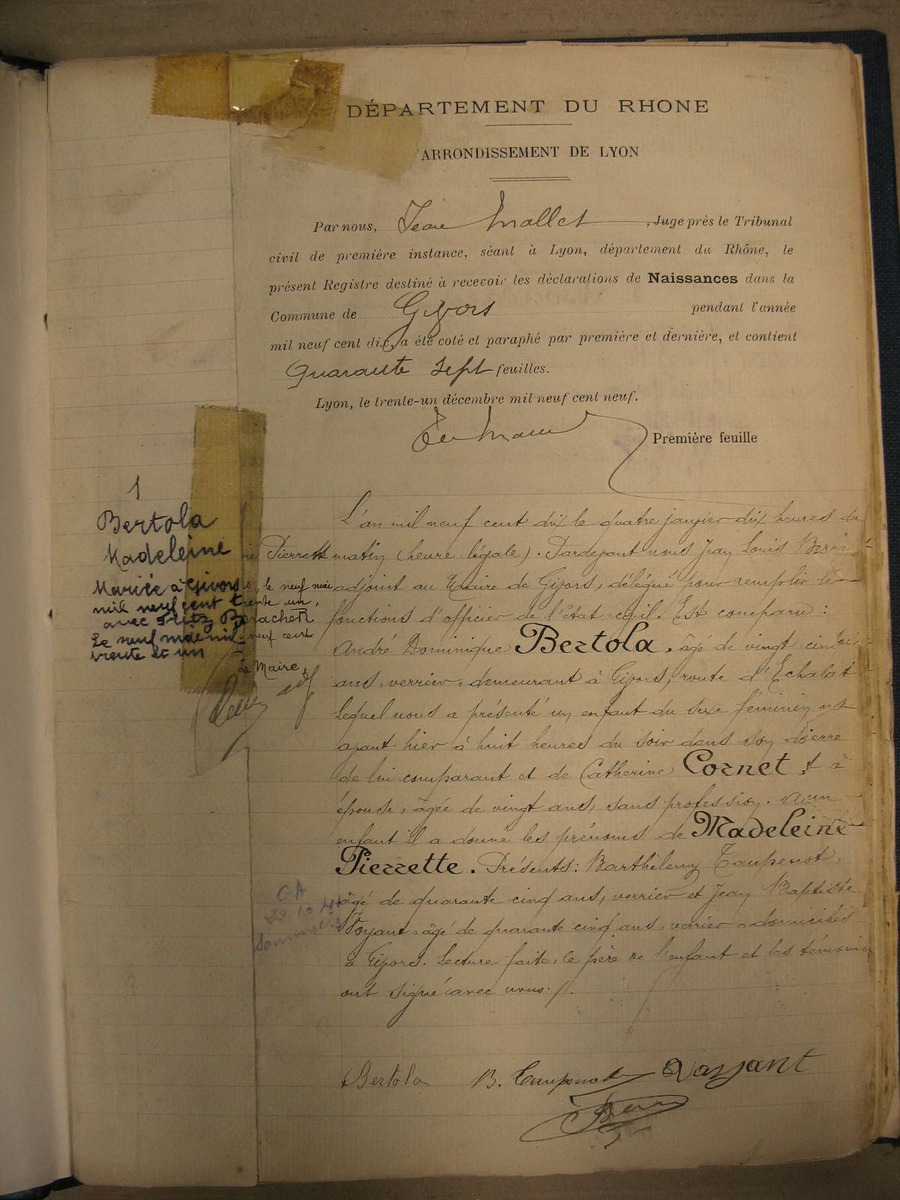 DÉPARTEMENT DU RHONE
ARRONDISSEMENT DE LYON
Par nous, Jean Mallet, Juge près le Tribunal
civil de première instance, séant à Lyon, département du Rhône, le
présent Registre destiné à recevoir les déclarations de Naissances dans la
Commune de Givors pendant l'année
mil neuf cent dix, a été coté et paraphé par première et dernière, et contient
Quarante Sept feuilles.
Lyon, le trente-un décembre mil neuf cent neuf.
Première feuille
1
Bertola
Madeleine
Pierrette
Mariée à Givors, le neuf mai
mil neuf cent trente un,
avec
Le neuf mai mil neuf cent
trente et un
Le Maire,
L'an mil neuf cent dix le quatre janvier dix heures du
matin (heure légale). Pardevant nous Jean Louis
adjoint au Maire de Givors, délégué pour remplir les
fonctions d'officier de l'état-civil. Est comparu :
André Dominique Bertola, âgé de vingt cinq
ans, verrier, demeurant à Givors, route d'Echalas
Lequel nous a présenté un enfant du sexe féminin né
avant-hier à huit heures du soir dans son domicile
de lui comparant et de Catherine Cornet, sa
épouse, âgée de vingt ans, sans profession. Auquel
enfant il a donné les prénoms de Madeleine
Pierrette. Présents: Barthélemy Taupenot,
âgé de quarante cinq ans, verrier et Jean Baptiste
âgé de quarante cinq ans, verrier, domiciliés
à Givors. Lecture faite, le père de l'enfant et les témoins
ont signé avec nous./.
Bertola B. Taupenot